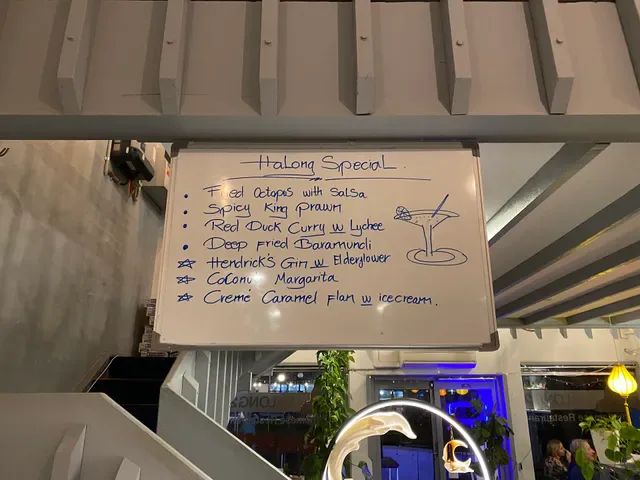 HaLong Special.
Fried Octopus with Salsa
Spicy King Prawn
Red Duck Curry w Lychee
Deep Fried Baramundi
Hendrick's Gin w Elderflower
Coconut Margarita
Cremé Caramel Flan w icecream.